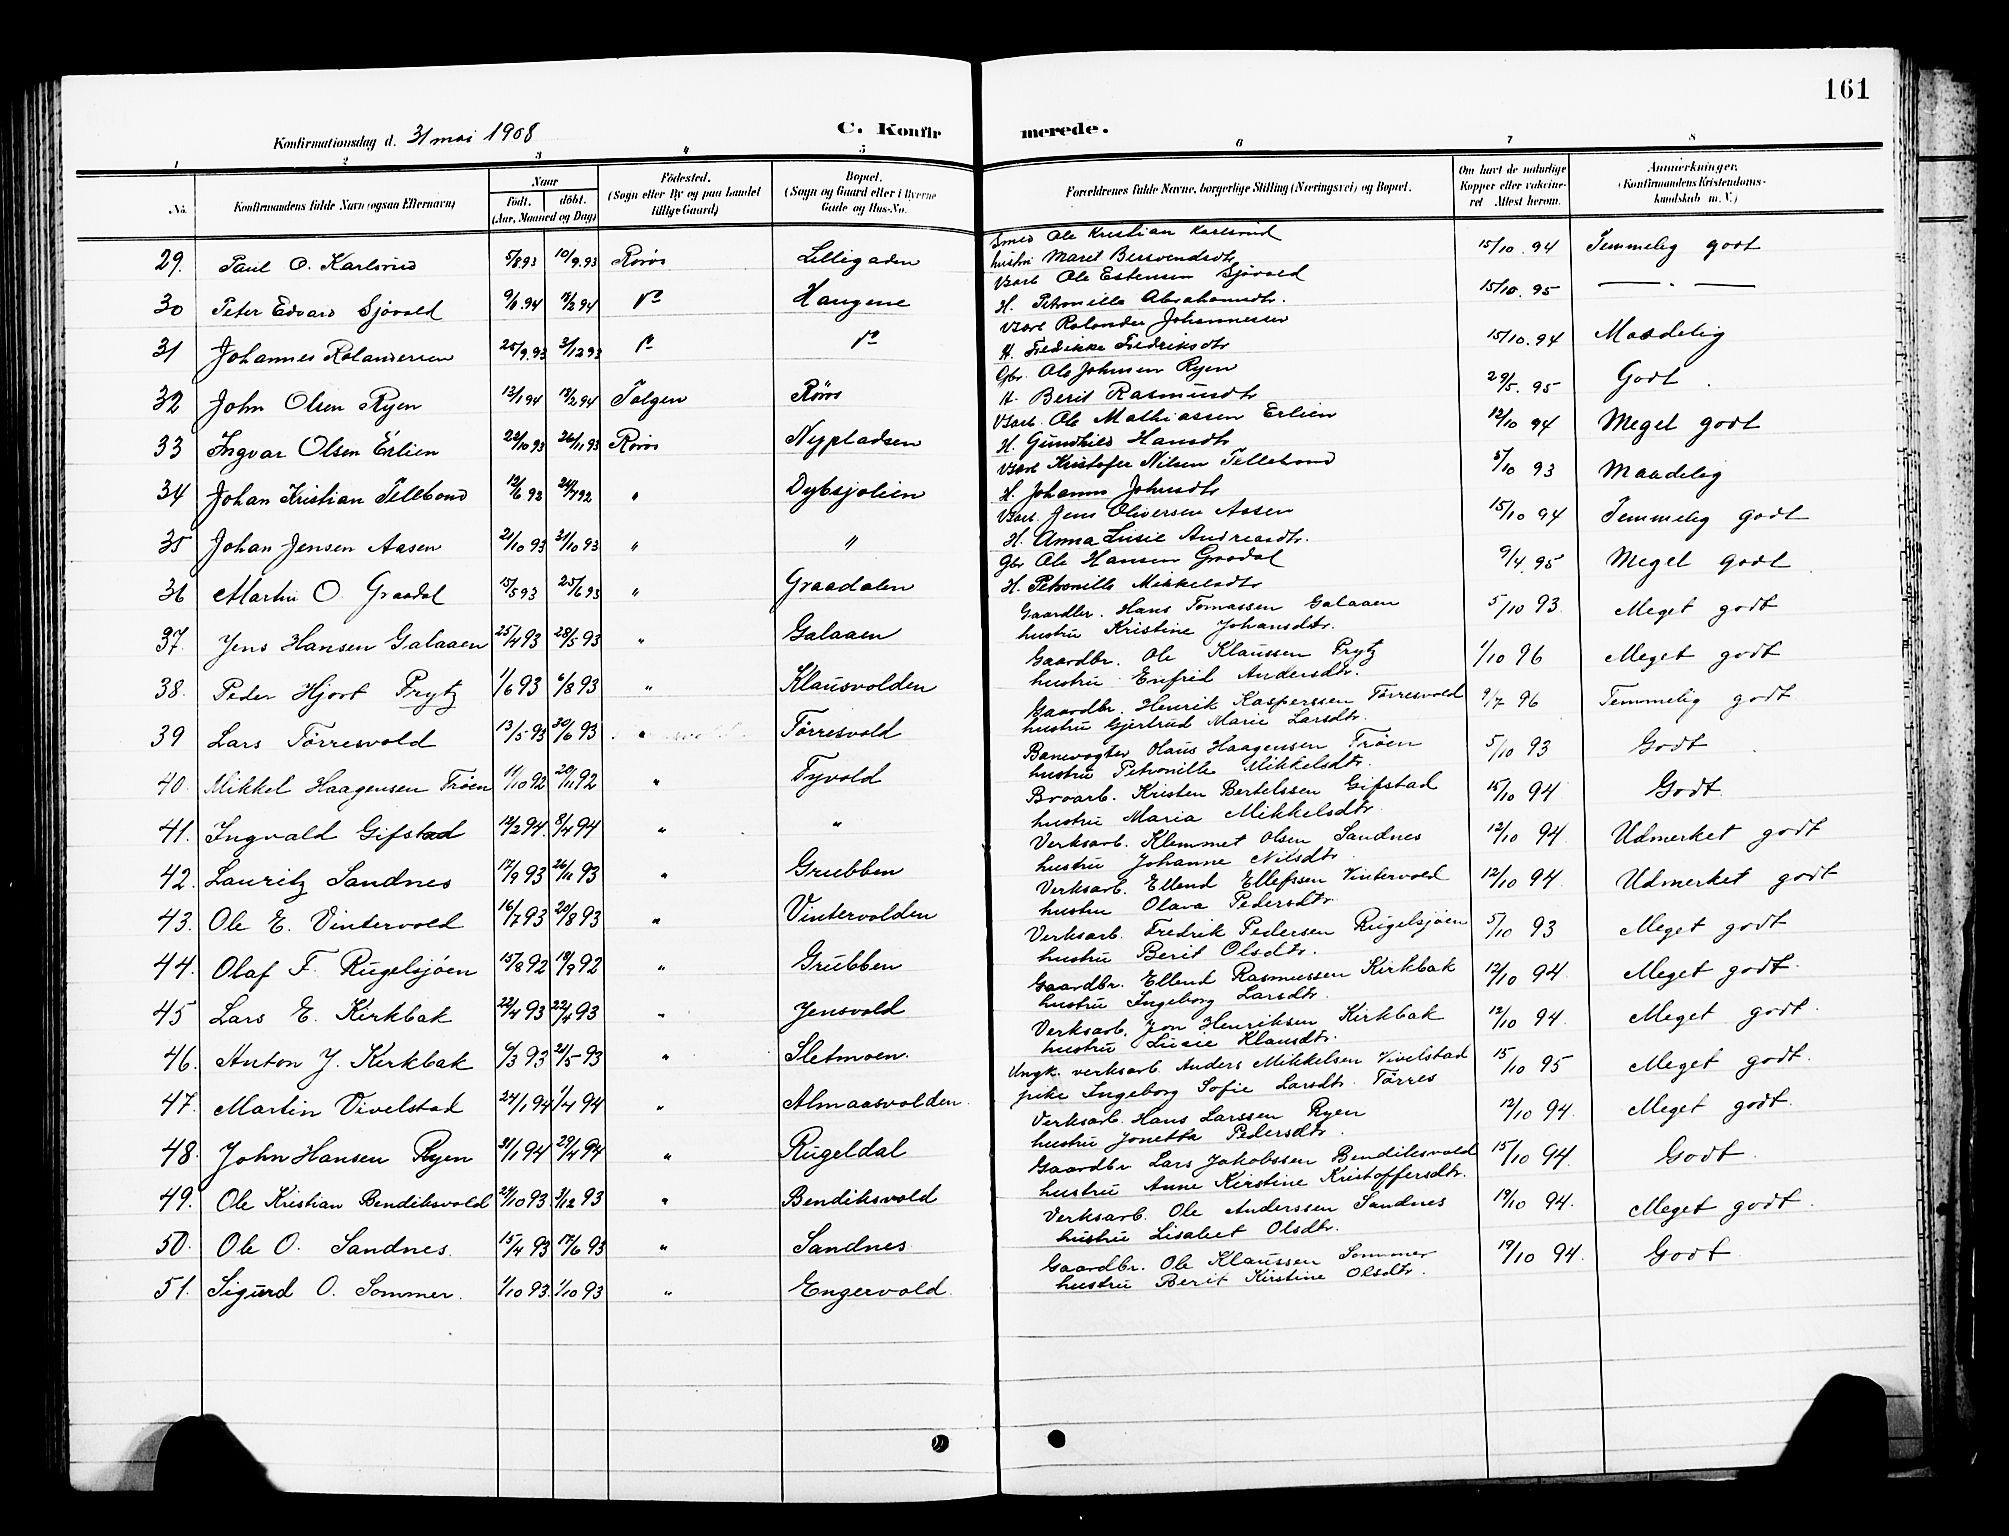 161
Konfirmationsdag d. 31 mai 1908 C. Konfir merede.
1 2 3 4 5 6 7 8
No. Konfirmandens fulde Navn (ogsaa Efternavn) Naar Født. døbt. (Aar, Maaned og Dag) Fødested. (Sogn eller By og paa Landet tillige Gaard) Bopæl. (Sogn og Gaard eller i Byerne Gade og Hus-No. Forældrenes fulde Navne, borgerlige Stilling (Næringsvei) og Bopæl. Om havt de naturlige Kopper eller vaccineret Attest herom. Anmærkninger, (Konfirmandens Kristendomskundskab m. V.)
Smed Ole Kristian Karlsvid
29. Paul O. Karlsvid 5/8 93 10/9.93 Røros Lilligaden hustru Maret Bersvendsdtr 15/10.94 Temmelig godt
Varb Ole Estensen Sjøvold
30 Peter Edvard Sjövold 9/1.94 11/2 94 do Haugene H. Petronille Abrahamsdtr. 15/10.95 — . —
Varb Rolander Johannessen
31 Johannes Rolandersen 25/9.93 3/12 93 do do H. Fredrikke Fredriksdtr 15/10.94 Maadelig
Gbr. Ole Johnsen Ryen
32 John Olsen Ryen 13/1 94 18/2 94 Tolgen Røros H. Berit Rasmusdtr 29/5.95 Godt.
Varb. Ole Mathiassen Erlien
33 Ingvar Olsen Erlien 22/10 93 26/11 93 Røros Nypladsen H. Gunhild Hansdtr 12/10 94 Meget godt
Varb Kristofer Nilsen Tellebond
34 Johan Kristian Tellebond 12/6 93 24/7 92 " Dybsjolien H. Johanna Johnsdtr 5/10 93 Maadelig
Varb. Jens Oliversen Aasen
35 Johan Jensen Aasen 21/10 93 31/10 93 " " H. Anna Lusie Andreasdtr. 15/10 94 Temmelig godt
Gbr Ole Hansen Graadal
36 Martin O. Graadal 15/5 93 25/6 93 " Graadalen H. Petronille Mikkelsdtr 9/4.95 Meget godt
Gaardbr. Hans Tomassen Galaaen
37. Jens Hansen Galaaen 25/4 93 28/5 93 " Galaaen hustru Kristine Johansdtr. 5/10 93 Meget godt
Gaardbr. Ole Klaussen Prytz
38. Peder Hjort Prytz 1/6 93 6/8 93 " Klausvolden hustru Enfrid Andersdtr. 1/10 96 Meget godt
Gaardbr. Henrik Kasperssen Tørresvold
39 Lars Tørresvold 13/5 93 30/6 93 " Tørresvold hustru Gjertrud Marie Larsdtr. 9/7 96 Temmelig godt
Banevogter Olaus Haagensen Trøen
40. Mikkel Haagensen Trøen 11/10 92 20/11 92 " Tyvold hustru Petronille Mikkelsdtr. 5/10 93 Godt
Broarb. Kristen Bertelssen Gifstad
41. Ingvald Gifstad 12/2 94. 8/4 94 " " hustru Maria Mikkelsdtr. 15/10 94 Godt
Verksarb. Klemmet Olsen Sandnes
42. Lauritz Sandnes 17/9 93 26/11 93 " Grubben hustru Johanne Nilsdtr. 12/10 94 Udmerket godt
Verksarb. Ellend Ellefssen Vintervold
43. Ole E. Vintervold 16/7 93 20/8 93 " Vintervolden hustru Olava Pedersdtr 12/10 94. Udmerket godt
Verksarb. Fredrik Pedersen Rugelsjøen
44. Olaf F. Rugelsjøen 15/8 92 18/9 92 " Grubben hustru Berit Olsdtr. 5/10 93 Meget godt
Gaardbr. Ellend Rasmussen Kirkbak
45 Lars E. Kirkbak 22/4 93 22/4 93 " Jensvold hustru Ingeborg Larsdtr. 12/10 94. Meget godt.
Verksarb. Jon Henriksen Kirkbak
46. Anton J. Kirkbak 6/3 93 21/5 93 " Sletmoen. hustru Lusie Klausdtr. 12/10 94. Meget godt.
Ungk. verksarb. Anders Mikkelsen Vivelstad
47. Martin Vivelstad 24/1 94 1/4 94 " Almaasvolden. pike Ingeborg Sofie Larsdtr. Tørres 15/10 95 Meget godt.
Verksarb. Hans Larssen Ryen
48. John Hansen Ryen 31/1 94 29/4 94 " Rugeldal hustru Jonetta Pedersdtr. 12/10 94. Meget godt.
Gaardbr Lars Jakobssen Bendiksvold
49. Ole Kristian Bendiksvold 24/10 93. 3/12 93 " Bendiksvold hustru Anne Kirstine Kristoffersdtr. 15/10 94. Godt.
Verksarb. Ole Anderssen Sandnes
50. Ole O. Sandnes. 15/4 93 17/6 93 " Sandnes hustru Lisabet Olsdtr. 19/10 94. Meget godt.
Gaardbr. Ole Klaussen Sommer
51. Sigurd O. Sommer. 1/10 93. 1/10 93 " Engervold. hustru Berit Kirstine Olsdtr. 19/10 94. Godt